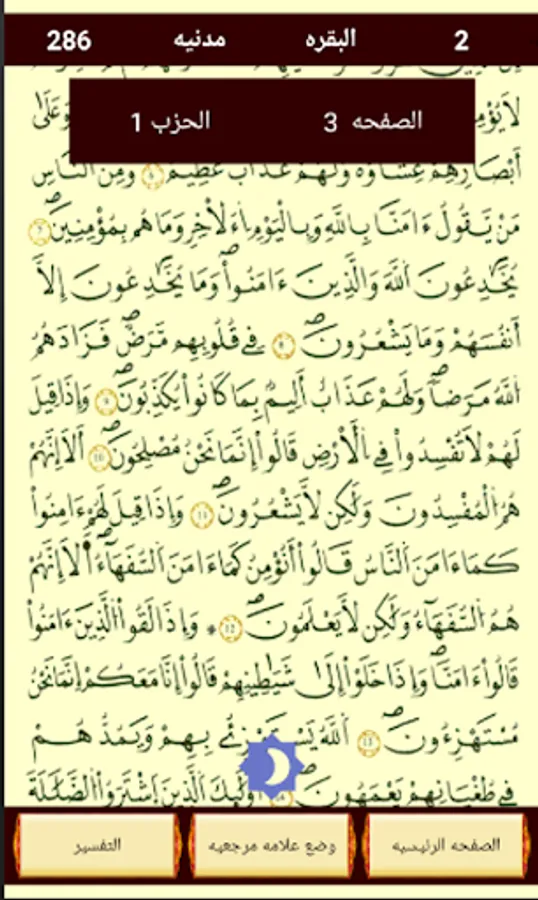 2 البقره مدنيه 286
الصفحه 3 الحزب 1
وَعَلَىٰ
أَبْصَٰرِهِمْ غِشَٰوَةٌ وَلَهُمْ عَذَابٌ عَظِيمٌ ٦ وَمِنَ اَلنَّاسِ
مَنْ يَّقُولُ ءَامَنَّا بِاللَّهِ وَبِالْيَوْمِ اِءَلَاخِرِ وَمَا هُم بِمُؤْمِنِينَ ٧
يُخَٰدِعُونَ اَللَّهَ وَالَّذِينَ ءَامَنُواْ وَمَا يُخَٰدِعُونَ إِلَّا
أَنفُسَهُمْ وَمَا يَشْعُرُونَ ٨ فِے قُلُوبِهِم مَّرَضٌ فَزَادَهُمُ
اُللَّهُ مَرَضاً وَلَهُمْ عَذَابٌ أَلِيمٌ بِمَا كَانُواْ يُكَذِّبُونَ ٩ وَإِذَا قِيلَ
لَهُمْ لَا تُفْسِدُواْ فِے اِلَارْضِ قَالُواْ إِنَّمَا نَحْنُ مُصْلِحُونَ ١٠ أَلَا إِنَّهُمْ
هُمُ اُلْمُفْسِدُونَ وَلَٰكِن لَّا يَشْعُرُونَ ١١ وَإِذَا قِيلَ لَهُمُ ءَامِنُواْ
كَمَا ءَامَنَ اَلنَّاسُ قَالُواْ أَنُومِنُ كَمَا ءَامَنَ اَلسُّفَهَاءُ أَلَا إِنَّهُمْ
هُمُ اُلسُّفَهَاءُ وَلَٰكِن لَّا يَعْلَمُونَ ١٢ وَإِذَا لَقُواْ اُلذِينَ ءَامَنُواْ
قَالُواْ ءَامَنَّا وَإِذَا خَلَوْاْ إِلَىٰ شَيَٰطِينِهِمْ قَالُواْ إِنَّا مَعَكُمْ إِنَّمَا نَحْنُ
مُسْتَهْزِءُونَ ١٣ اَللَّهُ يَسْتَهْزِئُ بِهِمْ وَيَمُدُّهُمْ
فِے طُغْيَٰنِهِمْ يَعْمَهُونَ ١٤ أُوْلَٰئِكَ اَلذِينَ اَشْتَرَوُاْ اُلضَّلَٰلَةَ
الصفحه الرئيسيه
وضع علامه مرجعيه
التفسير